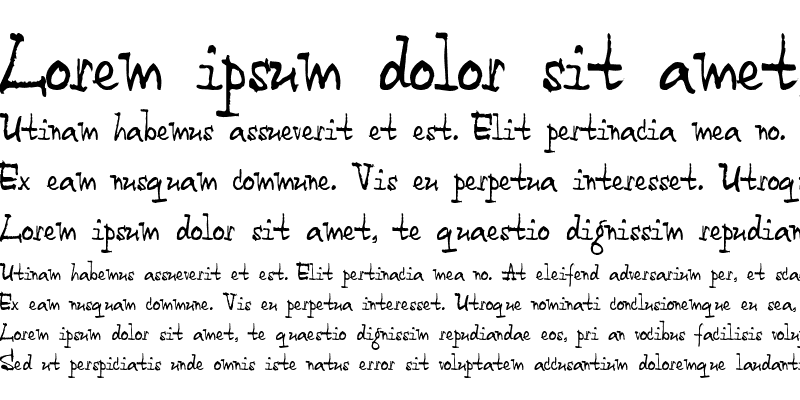 Lorem ipsum dolor sit amet,
Utinam habemus assueverit et est. Elit pertinacia mea no.
Ex eam nusquam commune. Vis eu perpetua interesset. Utroq
Lorem ipsum dolor sit amet, te quaestio dignissim repudian
Utinam habemus assueverit et est. Elit pertinacia mea no. At eleifend adversarium per, et scae
Ex eam nusquam commune. Vis eu perpetua interesset. Utroque nominati conclusionemque eu sea,
Lorem ipsum dolor sit amet, te quaestio dignissim repudiandae eos, pri an vocibus facilisis volu
Sed ut perspiciatis unde omnis iste natus error sit voluptatem accusantium doloremque laudanti